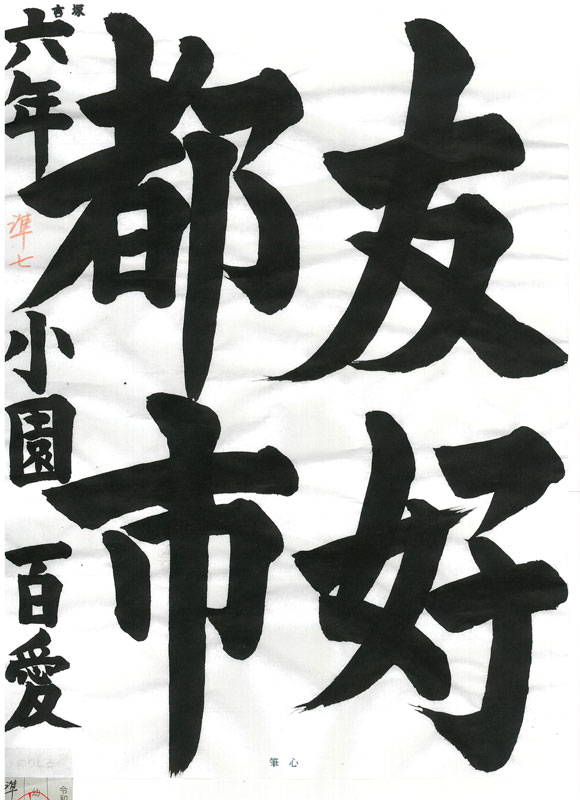 友好
都市
六年 小園 百愛
準七
吉塚
筆心
のりしろ
準
幼
令和